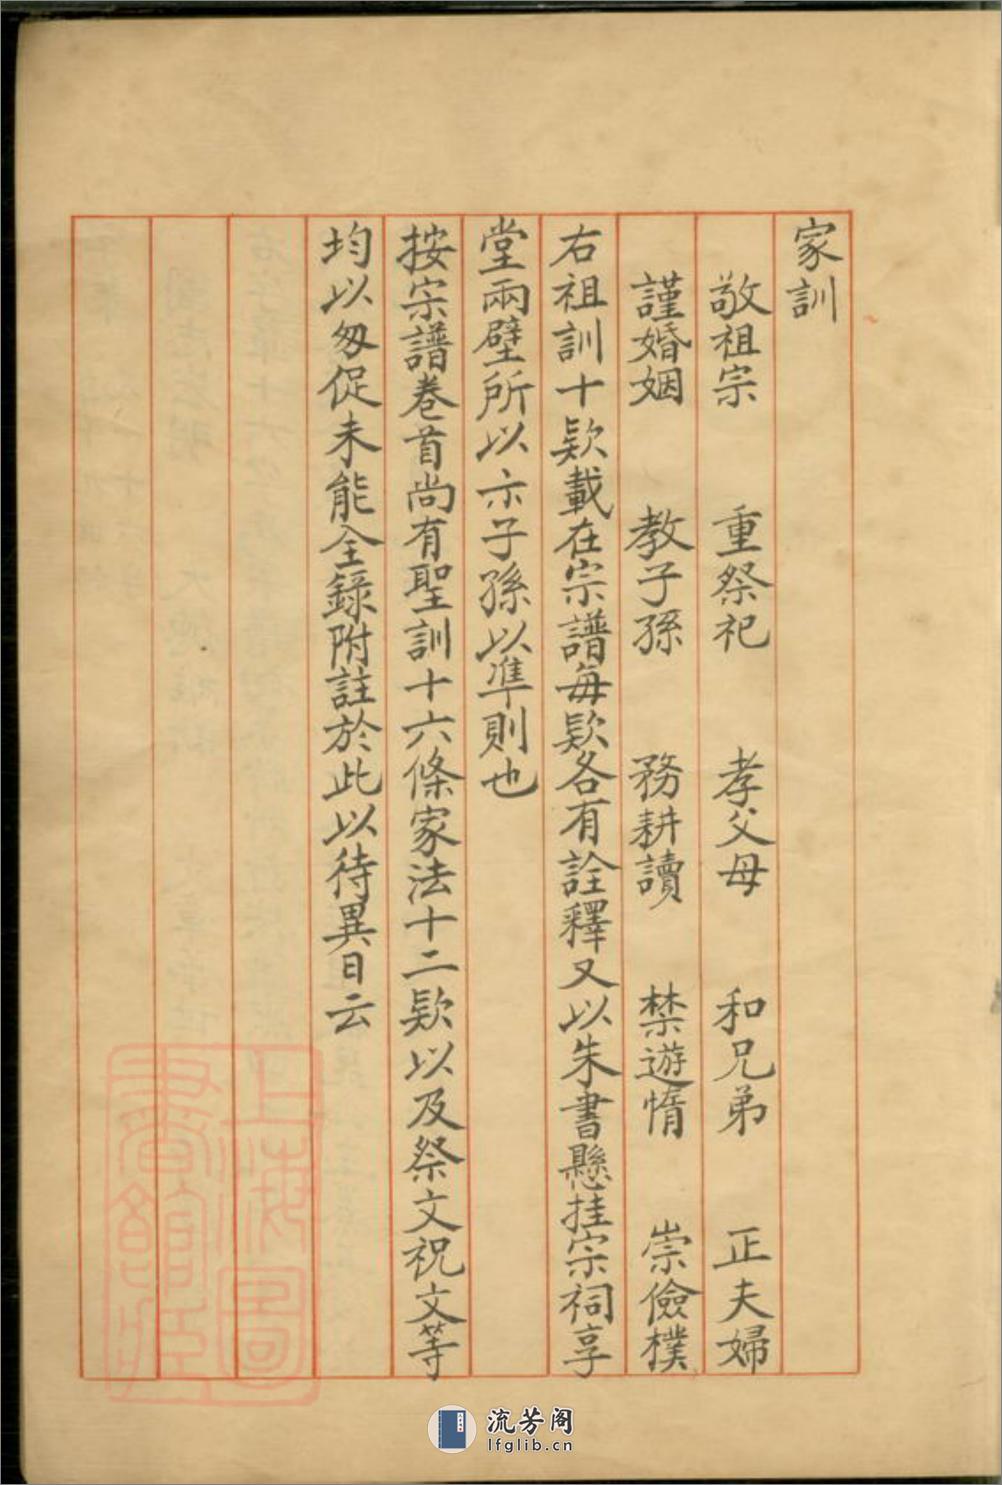 家訓
敬祖宗　重祭祀　孝父母　和兄弟　正夫婦
謹婚姻　教子孫　務耕讀　禁遊惰　崇儉樸
右祖訓十欵載在宗譜每欵各有詮釋又以朱書懸挂宗祠享
堂兩壁所以示子孫以準則也
按宗譜卷首尚有聖訓十六條家法十二欵以及祭文祝文等
均以匆促未能全錄附註於此以待異日云
上海圖
書館藏
流芳阁
lfglib.cn